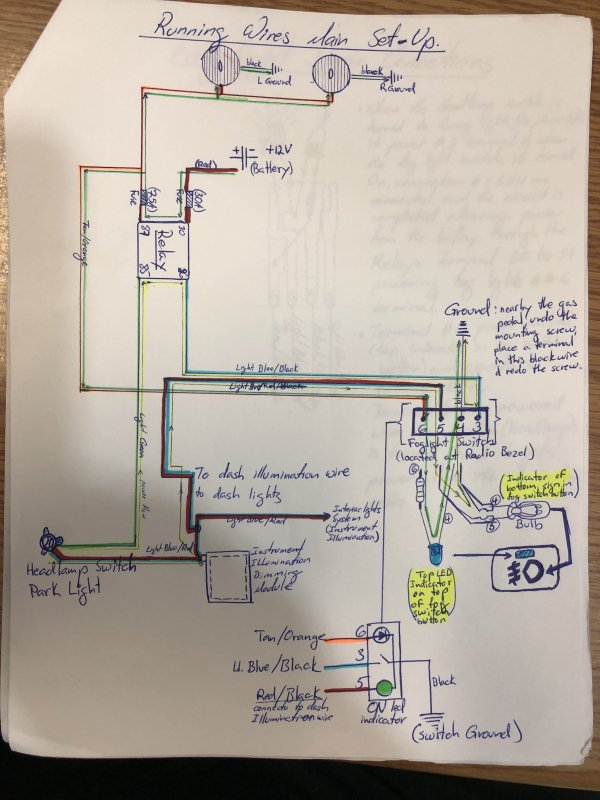 Running Wires Main Set-Up.
black
L Ground
black
R Ground
+ - +12V
(Red)
(Battery)
Fuse
(7.5A)
Fuse
(30A)
87
30
Relay
85
86
Tan/Orange
Ground: nearby the gas
pedal, undo the
mounting screw,
place a terminal
in this black wire
& redo the screw.
Light Blue/Black
black
6 5 4 3
Foglight Switch
(located at Radio Bezel)
Light Green
To dash illumination wire
to dash lights
Indicator of
bottom sign in
fog switch button)
Bulb
Light Blue/Red
Interior lights
System
(Instrument
Illumination)
Light Blue/Red
Headlamp Switch
Park Light
Instrument
Illumination
Dimming
Module
Top LED
Indicator
on top
of fog
switch
button
Tan/Orange
6
Lt. Blue/Black
3
Red/Black
5
connects to dash
Illumination wire
ON led
indicator
Black
(Switch Ground)